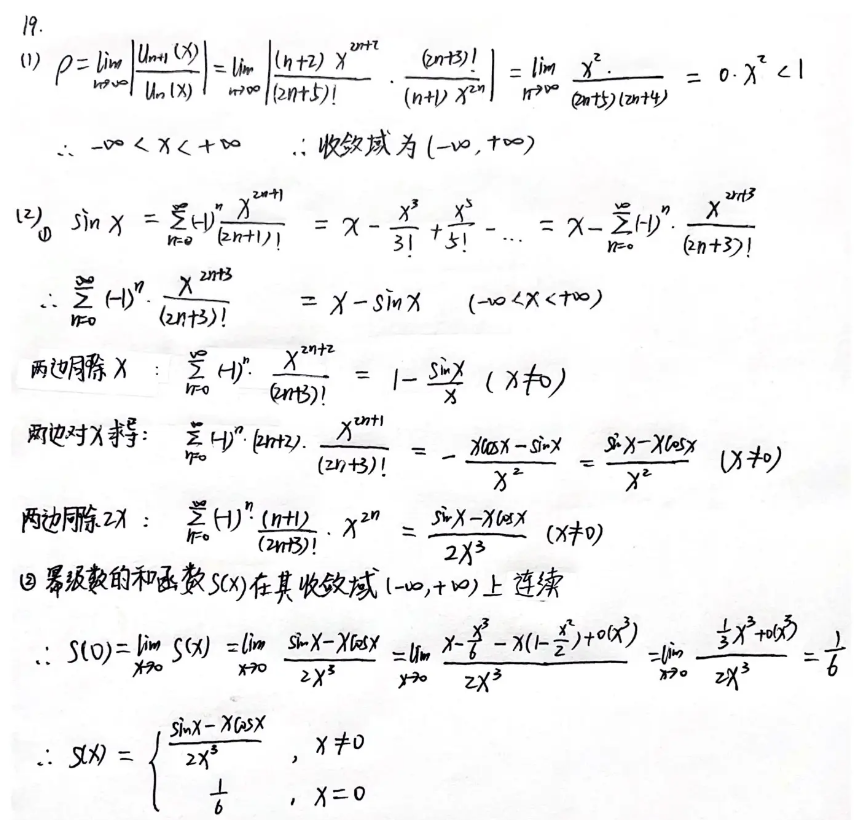 19.
(1) ρ = lim_{n→∞} |U_{n+1}(x) / U_n(x)| = lim_{n→∞} |(n+2) x^{2n+2} / (2n+5)! · (2n+3)! / ((n+1) x^{2n})| = lim_{n→∞} x² · / (2n+5)(2n+4) = 0·x² < 1
∴ -∞ < x < +∞ ∴ 收敛域为 (-∞, +∞)
(2) ① sin x = ∑_{n=0}^{∞} (-1)^n x^{2n+1} / (2n+1)! = x - x³/3! + x⁵/5! - ... = x - ∑_{n=0}^{∞} (-1)^n · x^{2n+3} / (2n+3)!
∴ ∑_{n=0}^{∞} (-1)^n · x^{2n+3} / (2n+3)! = x - sin x (-∞ < x < +∞)
两边同除 x : ∑_{n=0}^{∞} (-1)^n · x^{2n+2} / (2n+3)! = 1 - sin x / x (x ≠ 0)
两边对 x 求导: ∑_{n=0}^{∞} (-1)^n · (2n+2) · x^{2n+1} / (2n+3)! = - (x cos x - sin x) / x² = (sin x - x cos x) / x² (x ≠ 0)
两边同除 2x : ∑_{n=0}^{∞} (-1)^n · (n+1) / (2n+3)! · x^{2n} = (sin x - x cos x) / 2x³ (x ≠ 0)
② 幂级数的和函数 S(x) 在其收敛域 (-∞, +∞) 上连续
∴ S(0) = lim_{x→0} S(x) = lim_{x→0} (sin x - x cos x) / 2x³ = lim_{x→0} (x - x³/6 - x(1 - x²/2) + o(x³)) / 2x³ = lim_{x→0} (1/3 x³ + o(x³)) / 2x³ = 1/6
∴ S(x) = { (sin x - x cos x) / 2x³ , x ≠ 0
1/6 , x = 0